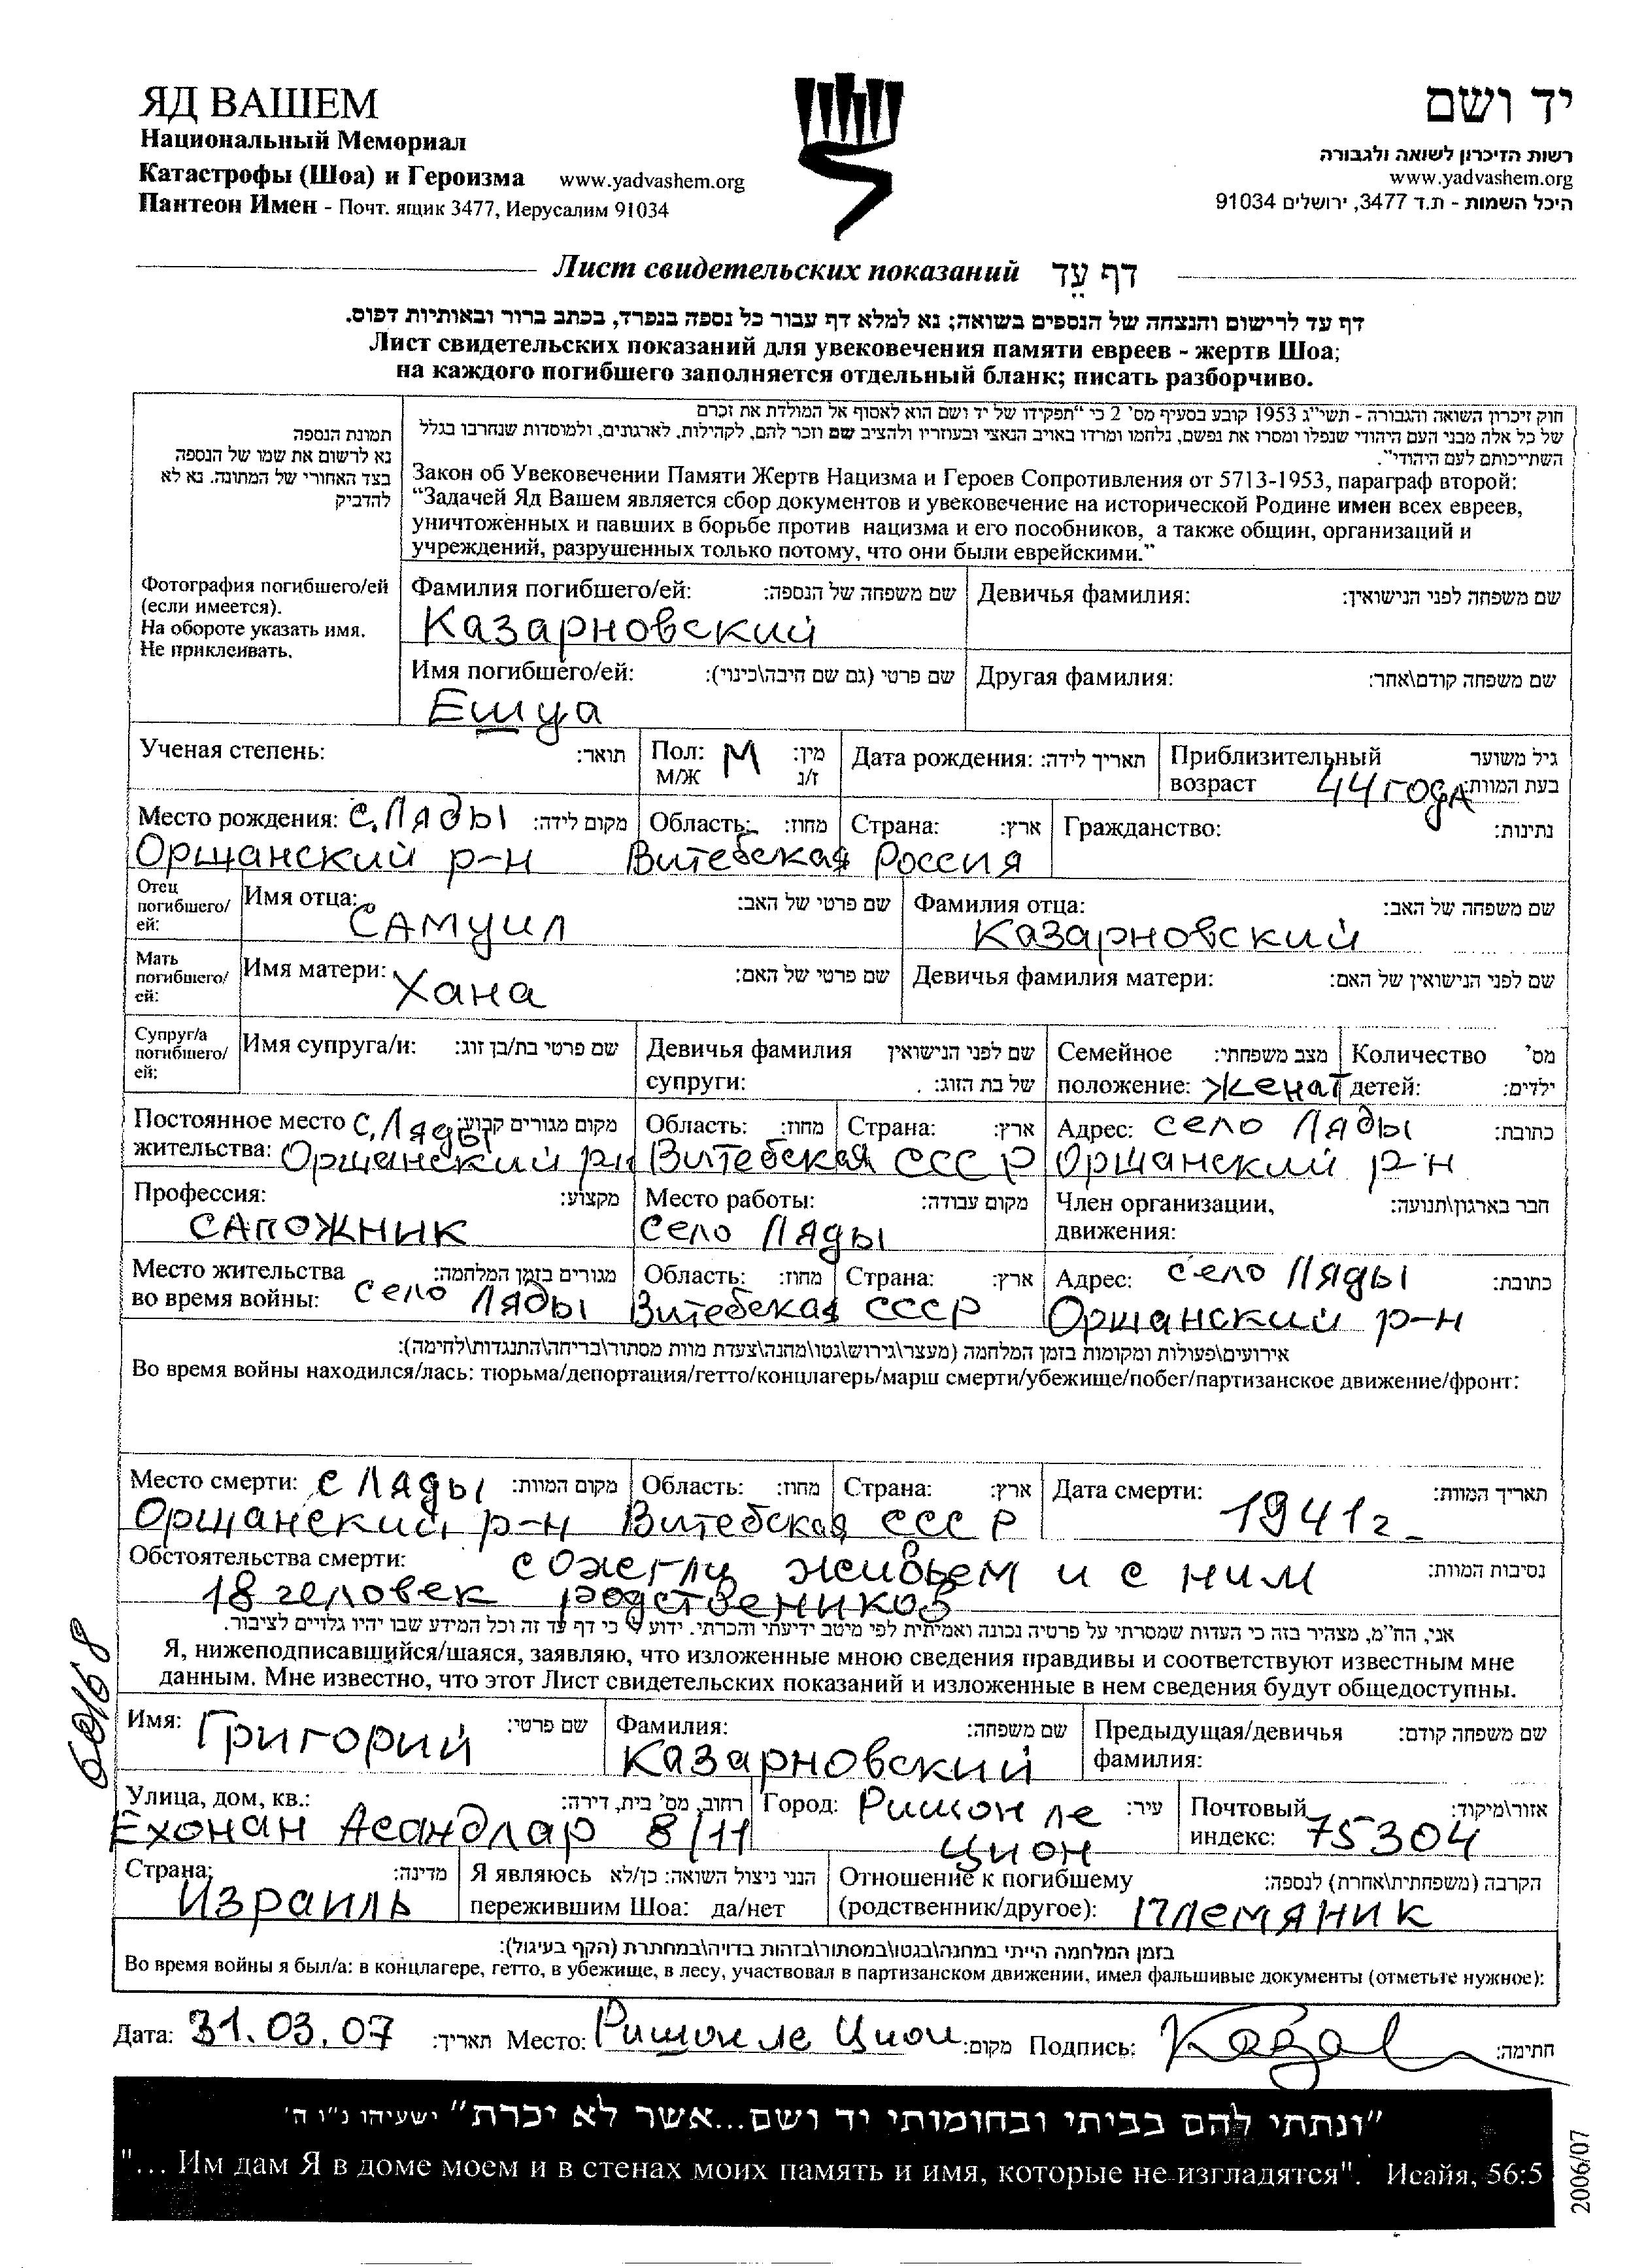 ЯД ВАШЕМ
Национальный Мемориал
Катастрофы (Шоа) и Героизма www.yadvashem.org
Пантеон Имен - Почт. ящик 3477, Иерусалим 91034
יד ושם
רשות הזיכרון לשואה ולגבורה
www.yadvashem.org
היכל השמות - ת.ד 3477, ירושלים 91034
Лист свидетельских показаний דף עֵד
דף עד לרישום והנצחה של הנספים בשואה; נא למלא דף עבור כל נספה בנפרד, בכתב ברור ובאותיות דפוס.
Лист свидетельских показаний для увековечения памяти евреев - жертв Шоа;
на каждого погибшего заполняется отдельный бланк; писать разборчиво.
תמונת הנספה
נא לרשום את שמו של הנספה
בצד האחורי של התמונה. נא לא
להדביק
Фотография погибшего/ей
(если имеется).
На обороте указать имя.
Не приклеивать.
חוק זיכרון השואה והגבורה - תשי"ג 1953 קובע בסעיף מס' 2 כי "תפקידו של יד ושם הוא לאסוף אל המולדת את זכרם
של כל אלה מבני העם היהודי שנפלו ומסרו את נפשם, נלחמו ומרדו באויב הנאצי ובעוזריו ולהציב שם וזכר להם, לקהילות, לארגונים, ולמוסדות שנחרבו בגלל
השתייכותם לעם היהודי".
Закон об Увековечении Памяти Жертв Нацизма и Героев Сопротивления от 5713-1953, параграф второй:
“Задачей Яд Вашем является сбор документов и увековечение на исторической Родине имен всех евреев,
уничтоженных и павших в борьбе против нацизма и его пособников, а также общин, организаций и
учреждений, разрушенных только потому, что они были еврейскими.”
Фамилия погибшего/ей: שם משפחה של הנספה: Девичья фамилия: שם משפחה לפני הנישואין:
Казарновский
Имя погибшего/ей: שם פרטי (גם שם חיבה\כינוי): Другая фамилия: שם משפחה קודם\אחר:
Ешуа
Ученая степень: תואר: Пол: М מין: Дата рождения: תאריך לידה: Приблизительный גיל משוער
м/ж ז/נ возраст 44 года בעת המוות:
Место рождения: с. Ляды מקום לידה: Область: מחוז: Страна: ארץ: Гражданство: נתינות:
Оршанский р-н Витебская Россия
Отец
погибшего/
ей:
Имя отца: Самуил שם פרטי של האב: Фамилия отца: שם משפחה של האב:
Казарновский
Мать
погибшего/
ей:
Имя матери: Хана שם פרטי של האם: Девичья фамилия матери: שם לפני הנישואין של האם:
Супруг/а
погибшего/
ей:
Имя супруга/и: שם פרטי בת/בן זוג: Девичья фамилия שם לפני הנישואין Семейное מצב משפחתי: Количество מס'
супруги: של בת הזוג: положение: женат детей: ילדים:
Постоянное место с. Ляды מקום מגורים קבוע: Область: מחוז: Страна: ארץ: Адрес: село Ляды כתובת:
жительства: Оршанский рн Витебская СССР Оршанский р-н
Профессия: מקצוע: Место работы: מקום עבודה: Член организации, חבר בארגון\תנועה:
сапожник село Ляды движения:
Место жительства מגורים בזמן המלחמה: Область: מחוז: Страна: ארץ: Адрес: село Ляды כתובת:
во время войны: село Ляды Витебская СССР Оршанский р-н
אירועים\פעולות ומקומות בזמן המלחמה (מעצר\גירוש\גטו\מחנה\צעדת מוות מסתור\בריחה\התנגדות\לחימה):
Во время войны находился/лась: тюрьма/депортация/гетто/концлагерь/марш смерти/убежище/побег/партизанское движение/фронт:
Место смерти: с Ляды מקום המוות: Область: מחוז: Страна: ארץ: Дата смерти: 1941г. תאריך המוות:
Оршанский р-н Витебская СССР
Обстоятельства смерти: сожгли живьем и с ним נסיבות המוות:
18 человек родствеников
אני, הח"מ, מצהיר בזה כי העדות שמסרתי על פרטיה נכונה ואמיתית לפי מיטב ידיעתי והכרתי. ידוע לי כי דף עד זה וכל המידע שבו יהיו גלויים לציבור.
Я, нижеподписавшийся/шаяся, заявляю, что изложенные мною сведения правдивы и соответствуют известным мне
данным. Мне известно, что этот Лист свидетельских показаний и изложенные в нем сведения будут общедоступны.
Имя: Григорий שם פרטי: Фамилия: שם משפחה: Предыдущая/девичья שם משפחה קודם:
Казарновский фамилия:
Улица, дом, кв.: רחוב, מס' בית, דירה: Город: Ришон ле עיר: Почтовый אזור\מיקוד:
Ехонан Асандлар 8/11 Цион индекс: 75304
Страна: מדינה: Я являюсь הנני ניצול השואה: כן/לא Отношение к погибшему הקרבה (משפחתית\אחרת) לנספה:
Израиль пережившим Шоа: да/нет (родственник/другое): племяник
בזמן המלחמה הייתי במחנה\בגטו\במסתור\בזהות בדויה\במחתרת (הקף בעיגול):
Во время войны я был/а: в концлагере, гетто, в убежище, в лесу, участвовал в партизанском движении, имел фальшивые документы (отметьте нужное):
Дата: 31.03.07 תאריך: Место: Ришон ле Цион מקום: Подпись: חתימה:
"ונתתי להם בביתי ובחומותי יד ושם...אשר לא יכרת" ישעיהו נ"ו ה'
"... Им дам Я в доме моем и в стенах моих память и имя, которые не изгладятся". Исайя, 56:5
2006/07